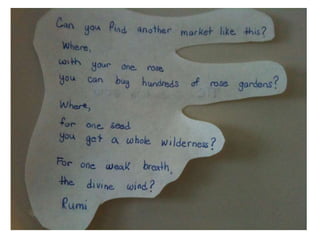 Can you find another market like this?
Where,
with your one rose
you can buy hundreds of rose gardens?
Where,
for one seed
you get a whole wilderness?
For one weak breath,
the divine wind?
Rumi